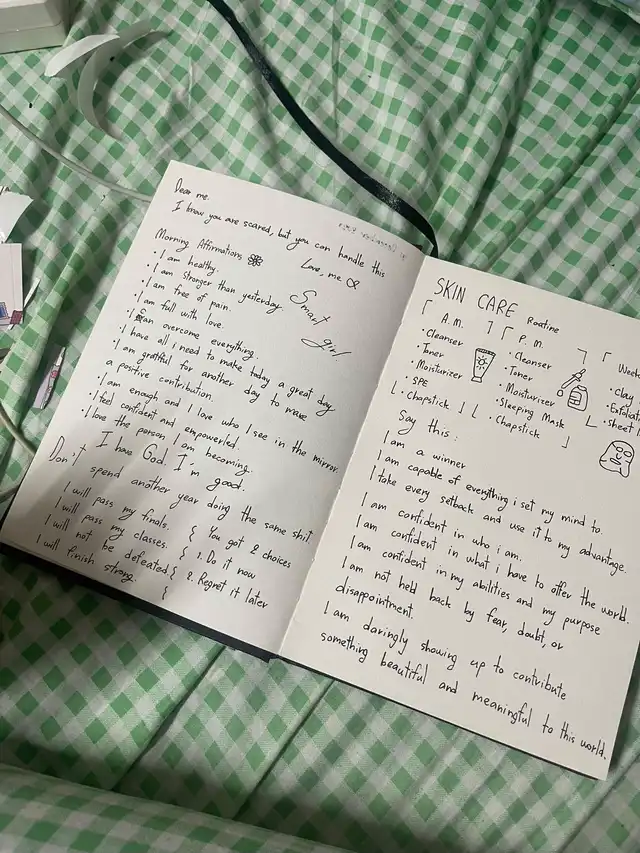 Dear me.
I know you are scared, but you can handle this
Love, me
Morning Affirmations
• I am healthy.
• I am stronger than yesterday.
• I am free of pain.
• I am full with love.
• I can overcome everything.
• I have all i need to make today a great day
• I am gratful for another day to make
a positive contribution.
• I am enough and I love who I see in the mirror.
• I feel confident and empowerled.
• I love the person I am becoming.
Smart
girl
I have God. I'm good.
Don't spend another year doing the same shit
I will pass my finals.
I will pass my classes.
I will not be defeated
I will finish strong.
You got 2 choices
1. Do it now
2. Regret it later
SKIN CARE Routine
A.M.
• Cleanser
• Toner
• Moisturizer
• SPE
• Chapstick
P.M.
• Cleanser
• Toner
• Moisturizer
• Sleeping Mask
• Chapstick
Week
• Clay
• Exfoliat
• Sheet
Say this:
I am a winner
I am capable of everything i set my mind to.
I take every setback and use it to my advantage.
I am confident in who i am.
I am confident in what i have to offer the world.
I am confident in my abilities and my purpose
I am not held back by fear, doubt, or
disappointment.
I am daringly showing up to contribute
something beautiful and meaningful to this world.